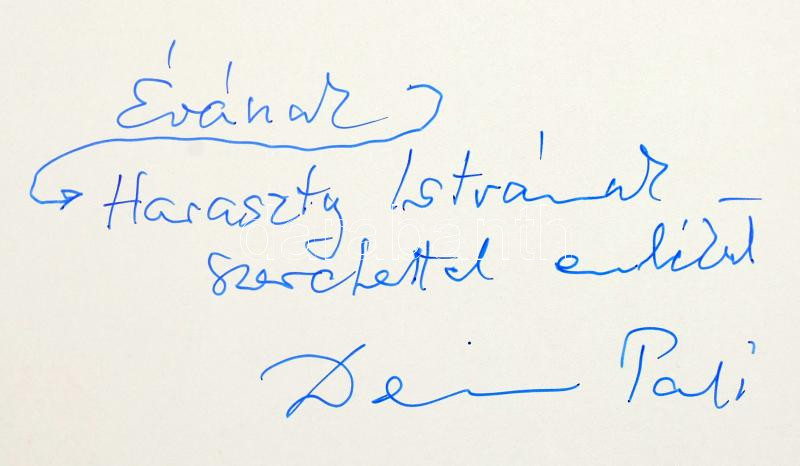 Évának
Haraszty Istvánnak
szeretettel emlékül
Deim Pali